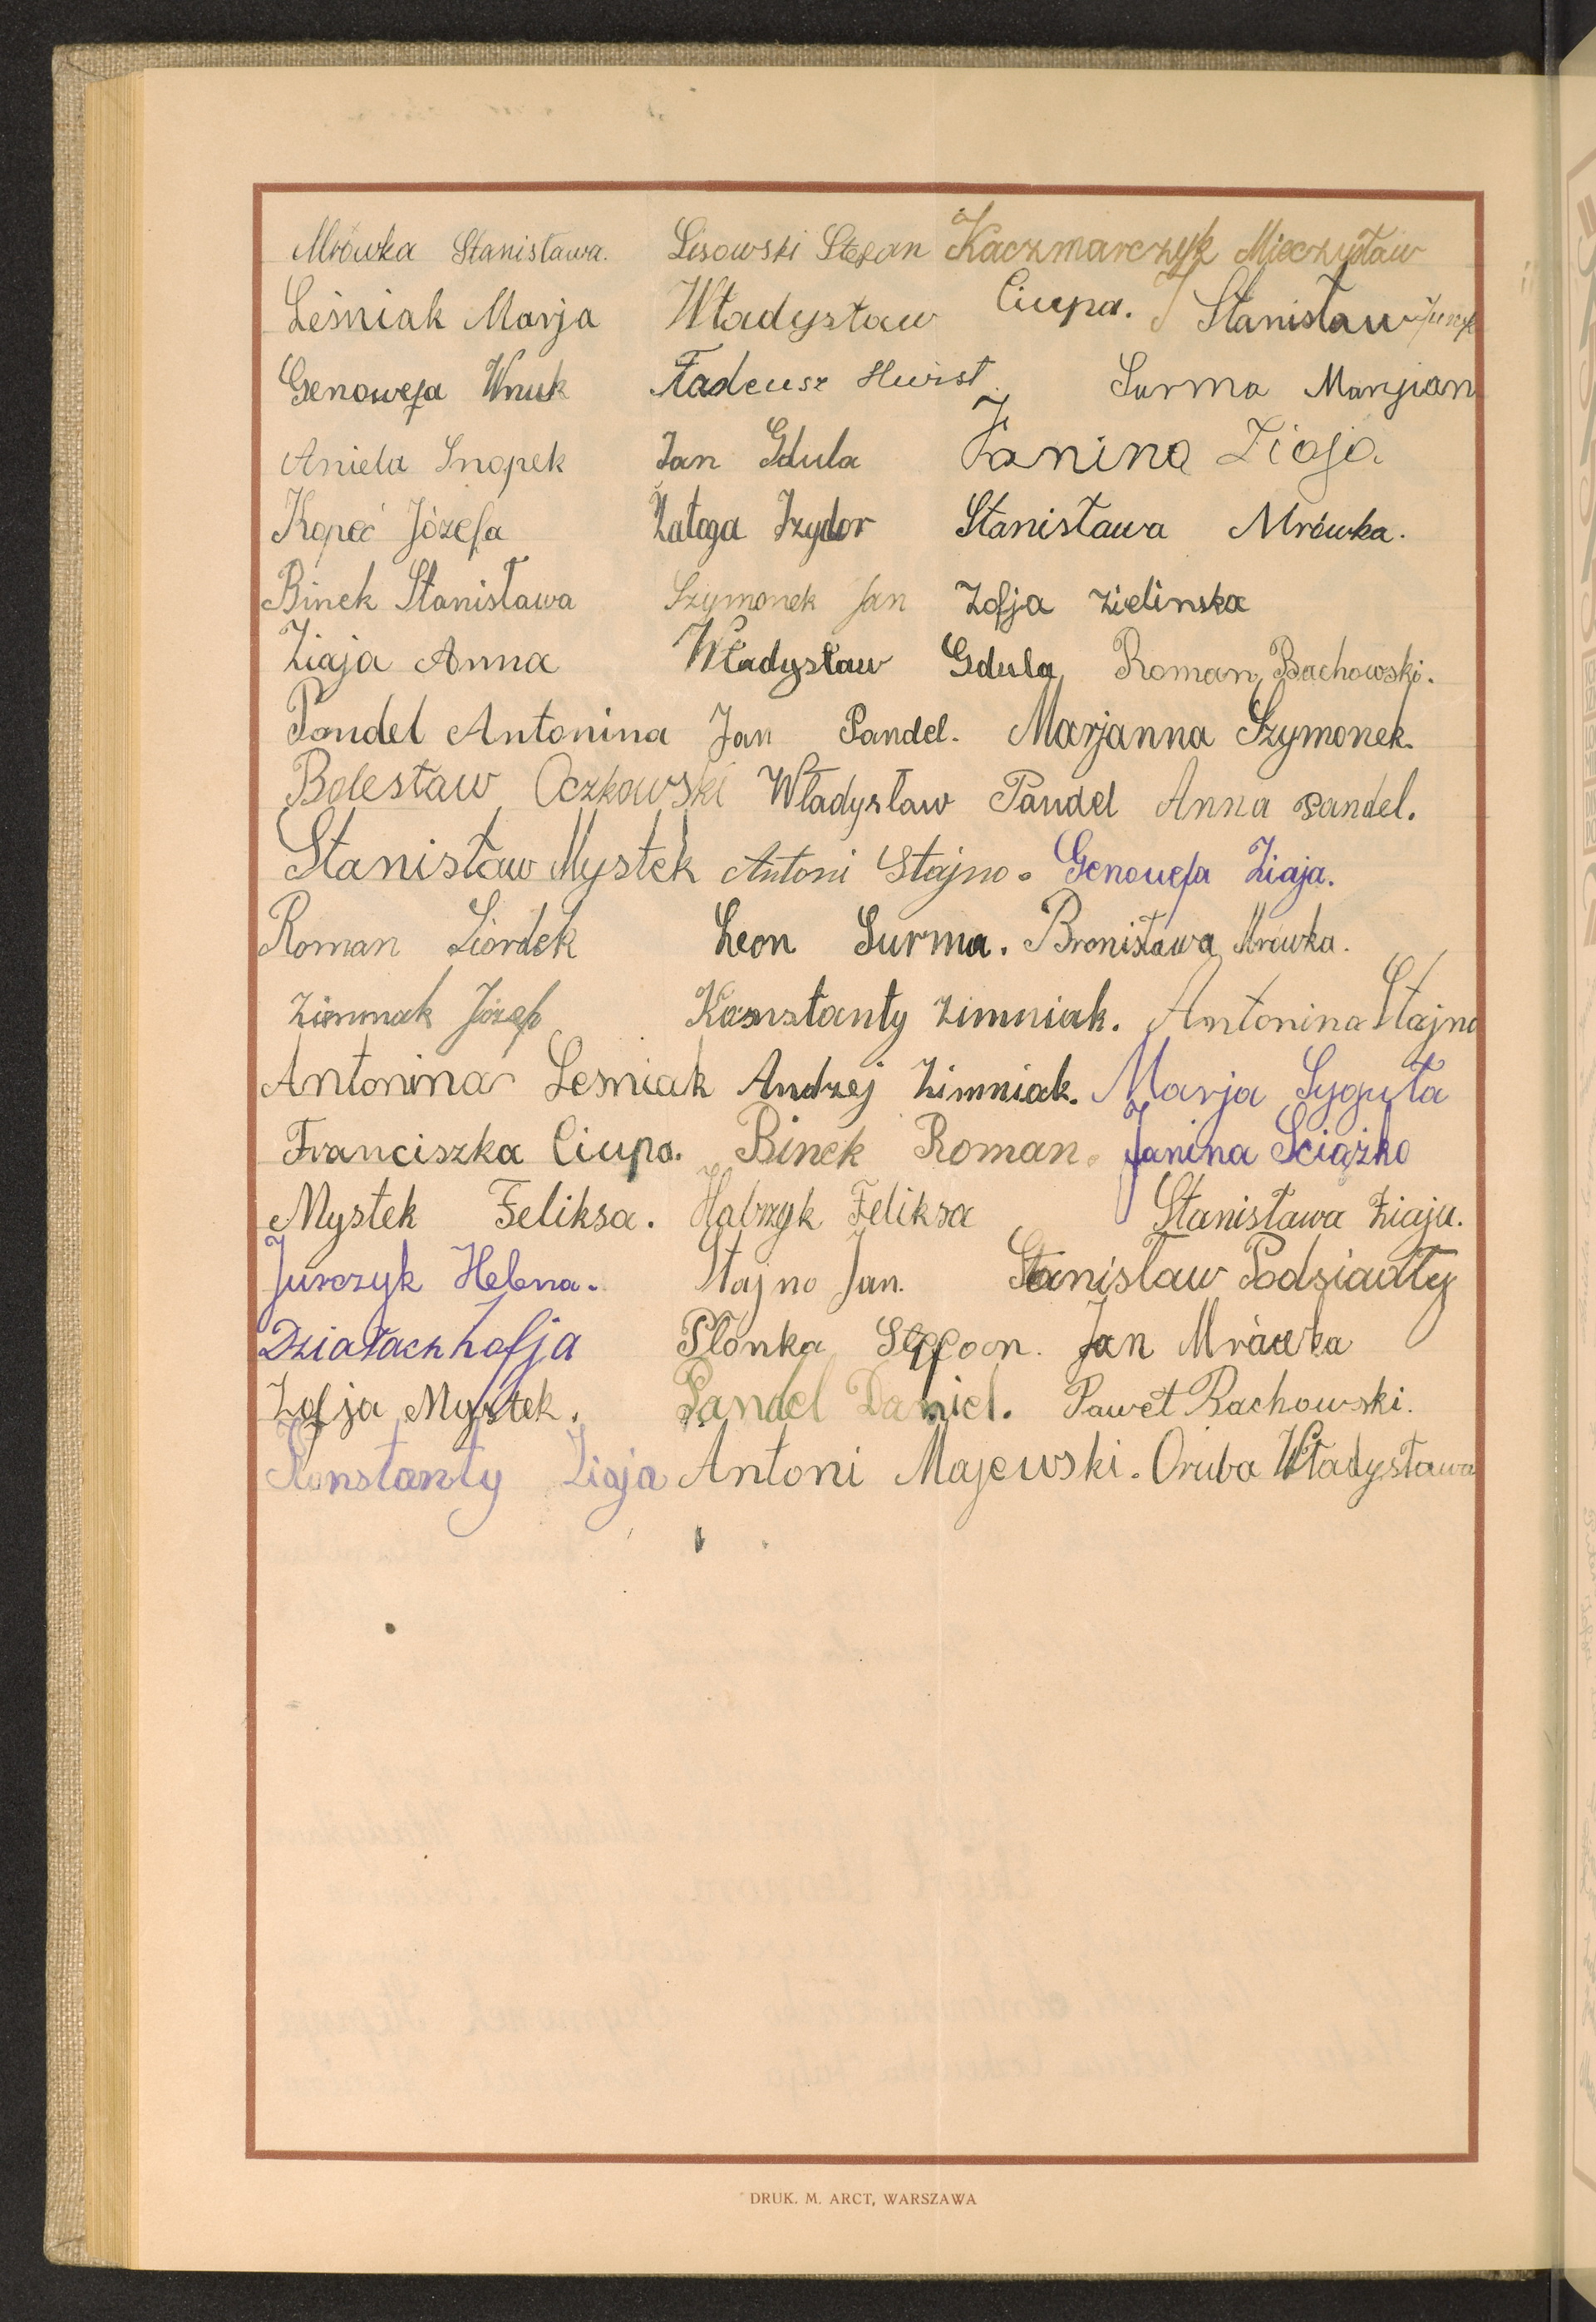 Mrówka Stanisława. Lisowski Stefan Kaczmarczyk Mieczysław
Leśniak Marja Władysław Ciupa. Stanisław
Genowefa Wnuk Tadeusz Surma Maryian
Aniela Snopek Jan Gdula Janina Ziaja
Kopeć Józefa Załoga Izydor Stanisława Mrówka.
Binek Stanisława Szymonek Jan Zofja Zielinska
Ziaja Anna Władysław Gdula Roman Bachowski.
Pandel Antonina Jan Pandel. Marjanna Szymonek.
Bolesław Oczkowski Władysław Pandel Anna Pandel.
Stanisław Mystek Antoni Stajno. Genowefa Ziaja.
Roman Leon Surma. Bronisława Mrówka.
Zimniak Józef Konstanty Zimniak. Antonina Stajno
Antonina Lesniak Andrzej Zimniak. Marja Syguła
Franciszka Ciupa. Binek Roman. Janina Sciążko
Mystek Feliksa. Feliksa Stanisława Ziaja.
Jurczyk Helena. Stajno Jan. Stanisław Podsiadły
Działach Zofja Płonka Jan Mrówka
Zofja Mystek. Pandel Daniel. Paweł Bachowski.
Konstanty Ziaja Antoni Majewski. Oruba Władysława
DRUK. M. ARCT, WARSZAWA